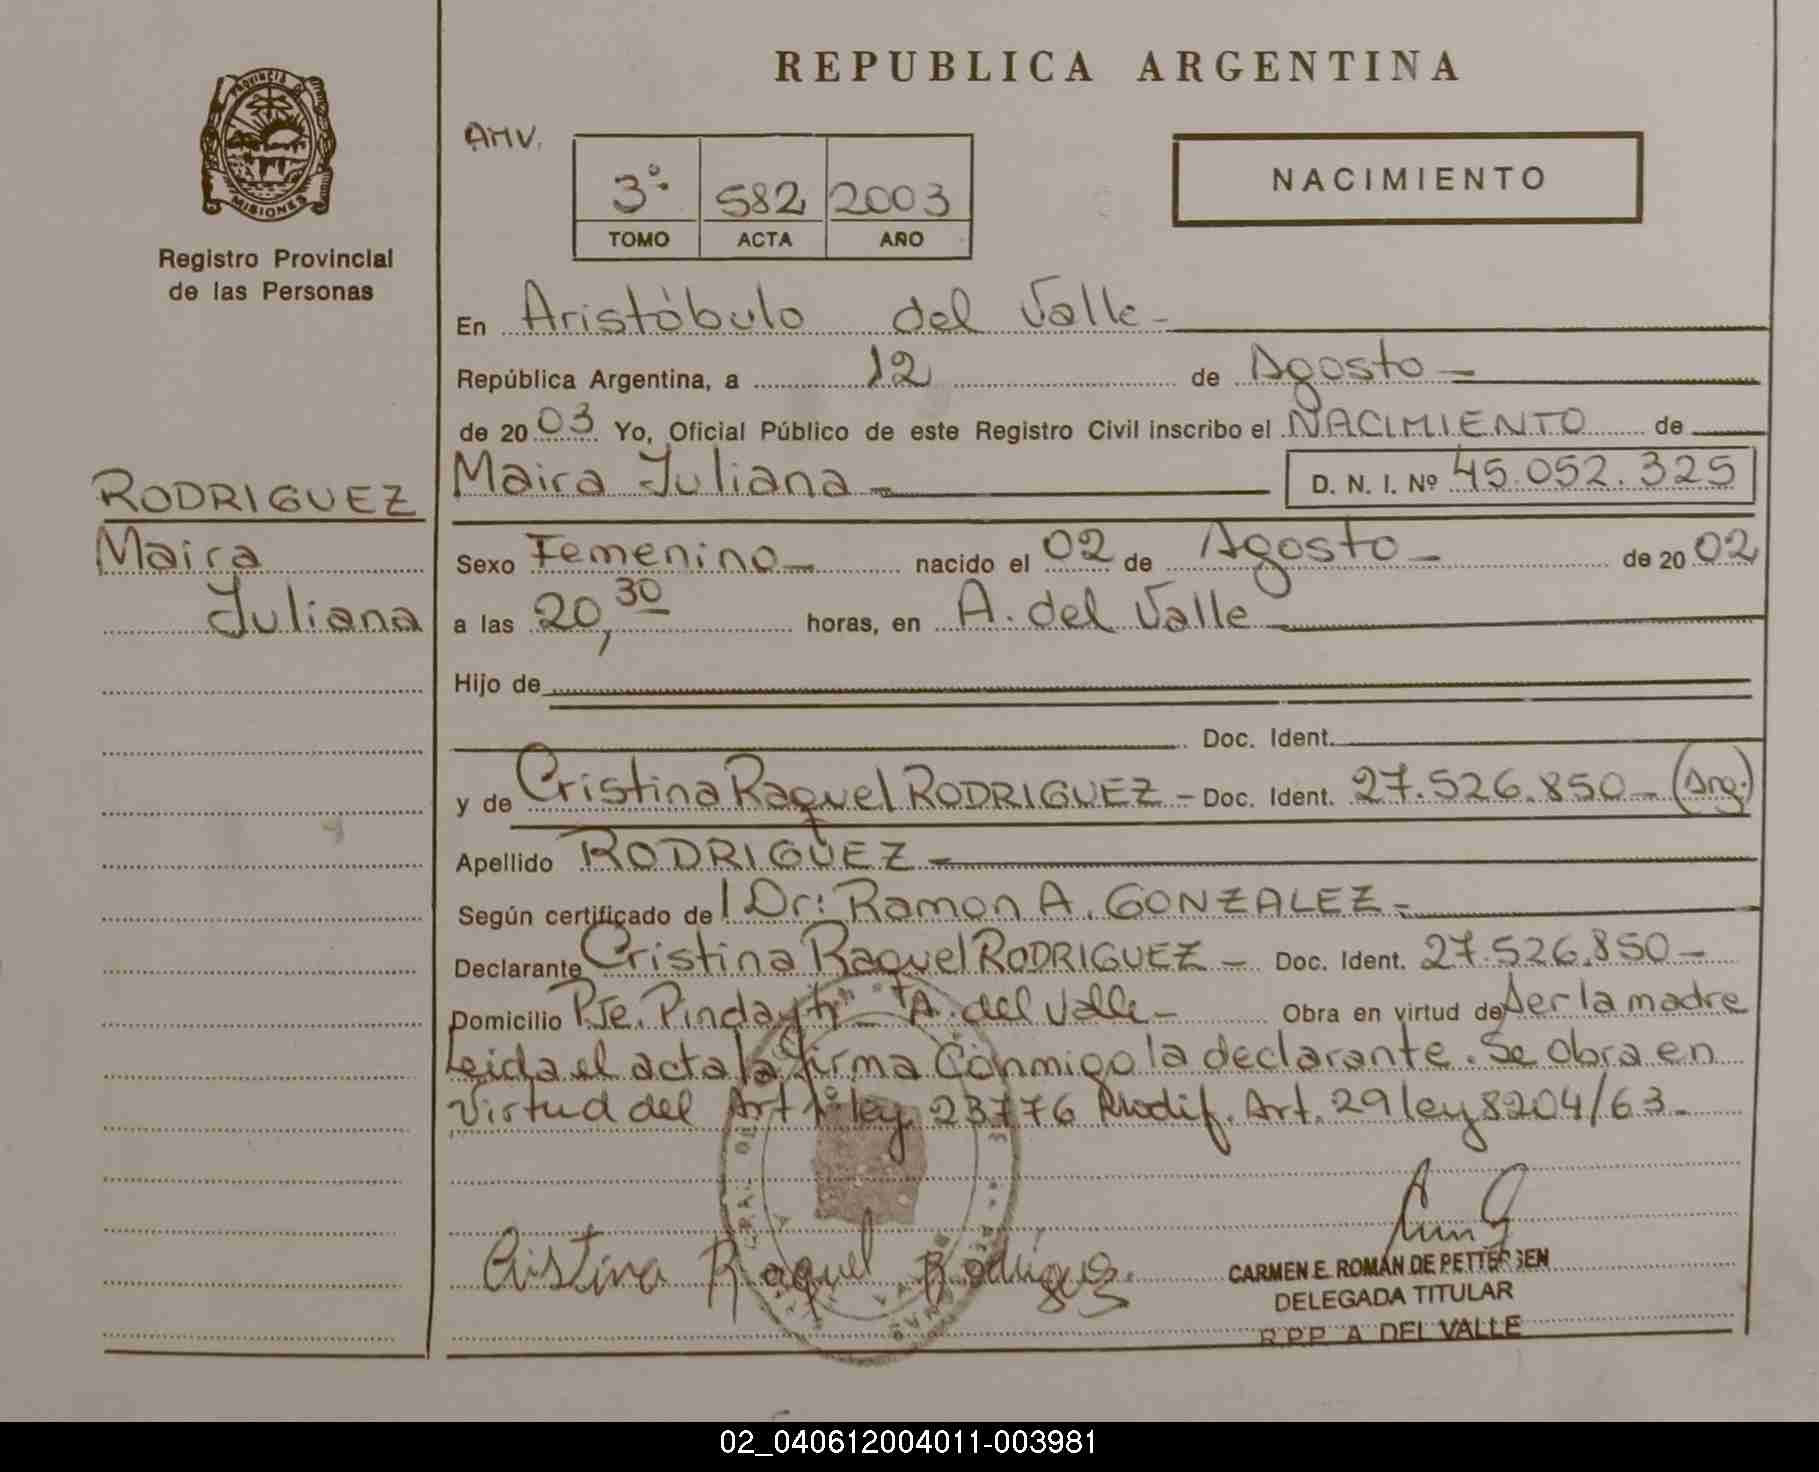 REPUBLICA ARGENTINA
PROVINCIA DE
MISIONES
Registro Provincial
de las Personas
AMV.
3º 582 2003
TOMO ACTA AÑO
NACIMIENTO
En Aristóbulo del Valle-
República Argentina, a 12 de Agosto-
de 2003 Yo, Oficial Público de este Registro Civil inscribo el NACIMIENTO de
Maira Juliana- D. N. I. Nº 45.052.325
RODRIGUEZ
Maira
Juliana
Sexo Femenino- nacido el 02 de Agosto- de 2002
a las 20,30 horas, en A. del Valle
Hijo de
Doc. Ident.
y de Cristina Raquel RODRIGUEZ - Doc. Ident. 27.526.850- (Arg.)
Apellido RODRIGUEZ-
Según certificado del Dr: Ramon A. GONZALEZ-
Declarante Cristina Raquel RODRIGUEZ - Doc. Ident. 27.526.850-
Domicilio Pje. Pindayti - A. del Valle- Obra en virtud de ser la madre
Leida el acta la firma conmigo la declarante. Se obra en
virtud del Art 1º ley 23776 Modif. Art. 29 ley 8204/63-
Cristina Raquel Rodriguez
CARMEN E. ROMÁN DE PETTERSEN
DELEGADA TITULAR
R.P.P. A. DEL VALLE
02_040612004011-003981